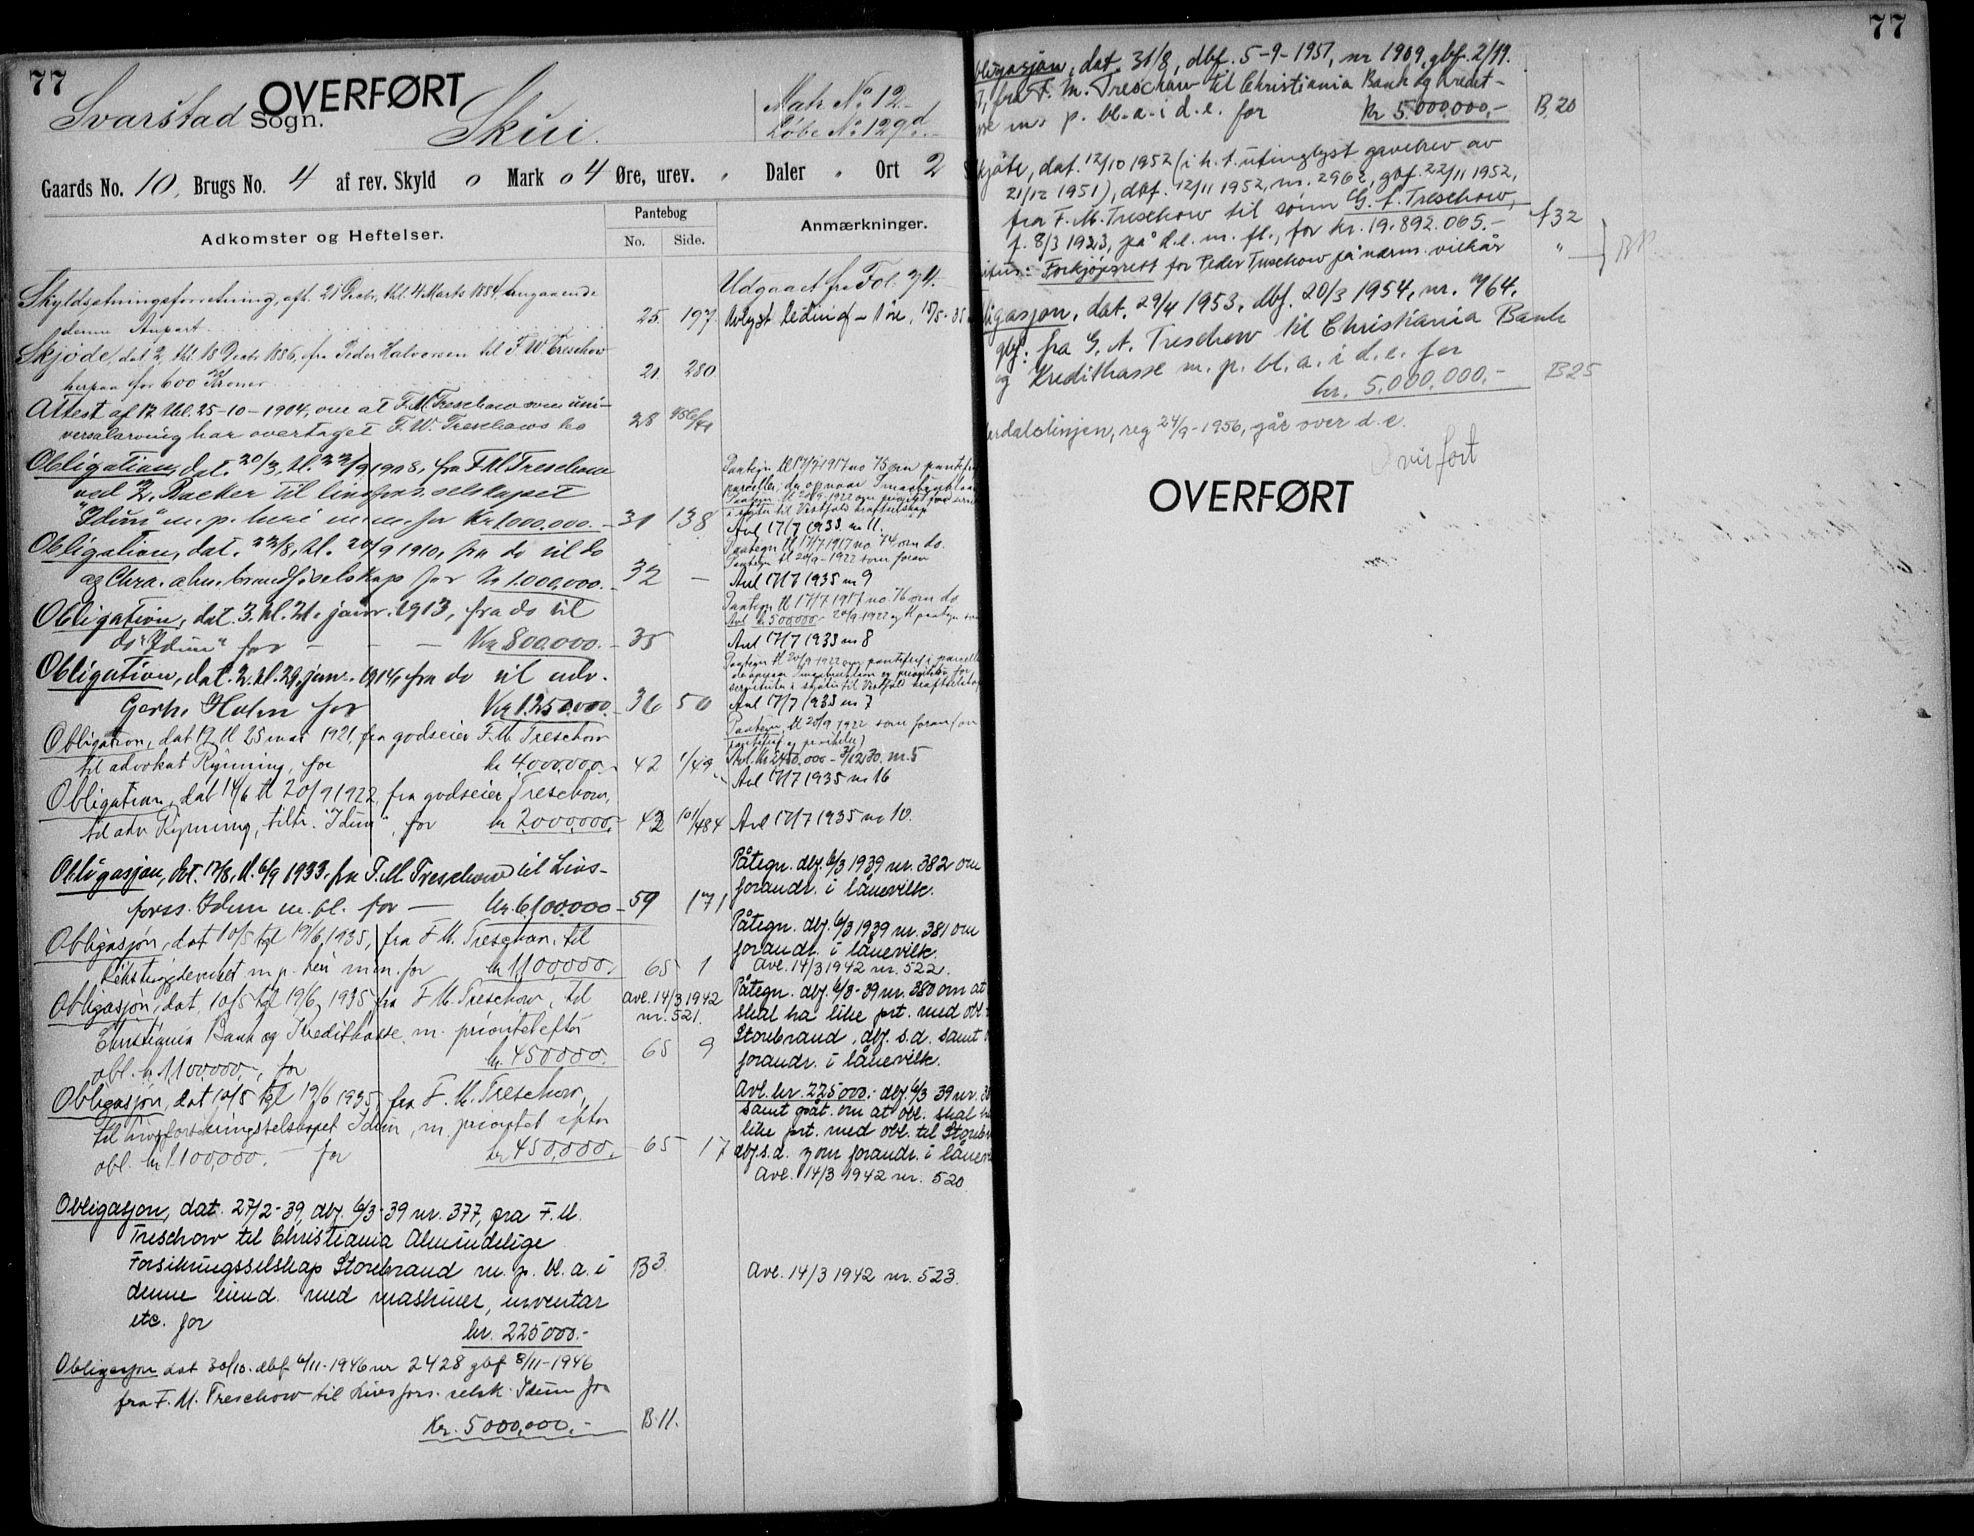 77
OVERFØRT
Svarstad Sogn.
Skiri.
Matr. No. 12.
Løbe No. 129d.
Gaards No. 10, Brugs No. 4 af rev. Skyld 0 Mark 04 Øre, urev. " Daler " Ort 2
Adkomster og Heftelser.
Pantebog
No. Side.
Anmærkninger.
Skyldsætningsforretning, afh. 21 thl. 4 Marts 1884, angaaende
denne Anpart
25 197
Udgaaet fra Fol. 74.
Skjøde, dat 2, thl. 18 1886, fra Peder Halvorsen til F. W. Treschow
herpaa for 600 Kroner
21 280
Attest af 12 thl. 25-10-1904, om at F. M. Treschow som uni-
versalarving har overtaget F. W. Treschows bo
28
Obligation, dat. 20/3, tl. 22/9 1908, fra F. M. Treschow
ved H. Backer til livsfors.selskapet
"Idun" m. p. heri m.m. for Kr 1000.000.
31 138
Avl 17/7 1935 no 11.
Obligation, dat. 22/8, tl. 20/9 1910, fra do til do
og Chra. alm. brandf.selskap for Kr 1.000.000.
32 —
Paategn tl 17/7 1917 no. 74 om do.
Paategn tl 20/9-1922 som foran
Avl 17/7 1935 no 9
Obligation, dat. 3. tl. 21. janr. 1913, fra do til
do "Idun" for — — — Kr 800.000.
35
Paategn tl 17/7 1917 no. 76 om do
Avl 17/7 1935 no 8
Obligation, dat. 2. tl. 29. janr. 1914, fra do til adv.
Gerh. Holm for Kr 1.250.000.
36 50
Avl 17/7 1935 no 7
Obligation, dat 12 tl 25 mai 1921, fra godseier F. M. Treschow
til advokat Ryning, for kr 4000.000.
42 1/49
Paategn tl 20/9 1922 som foran
Avl. Kr 2.450.000 - 31/12 30. nr. 5
Avl 17/7 1935 no 16
Obligation, dat 14/6 tl 20/9 1922, fra godseier Treschow,
til adv Ryning, tiltr. "Idun", for kr 2.000.000.
42 101/484
Avl 17/7 1935 no 10.
Obligasjon, dat. 17/8, tl. 6/9 1933, fra F. M. Treschow til Livs-
forss. Idun m. bl. for — kr. 6100.000
59 171
Påtegn. dbf. 6/3 1939 nr. 382 om
forandr. i lånevilk.
Obligasjon, dat 10/5 tgl 19/6 1935, fra F. M. Treschow, til
m. p. heri m.m. for kr 1.100.000.
65 1
Påtegn. dbf. 6/3 1939 nr. 381 om
forandr. i lånevilk.
Avl. 14/3 1942 nr. 522.
Obligasjon, dat 10/5 tgl 19/6 1935 fra F. M. Treschow, til
Christiania Bank og Kreditkasse, m. prioritet efter
obl. kr 1.100.000, for kr. 450.000.
Avl. 14/3 1942
nr. 521.
65 9
Påtegn. dbf. 6/3-39 nr. 380 om at
skal ha like prt. med obl.
Storebrand, dbf. s.d. samt
forandr. i lånevilk.
Obligasjon, dat 10/5 tgl 19/6 1935, fra F. M. Treschow,
til livsforsikringsselskapet Idun, m. prioritet efter
obl. kr 1.100.000. — for kr 450,000.
65 17
Avl. kr. 225000.- dbf. 6/3-39 nr.
samt påt. om at obl. skal
like prt. med obl. til
dbf. s.d. og om forandr. i
Avl. 14/3 1942 nr. 520
Obligasjon, dat. 27/2-39, dbf. 6/3-39 nr. 377, fra F. M.
Treschow til Christiania Almindelige
Forsikringsselskap Storebrand m. p. bl. a. i
denne eiend. med maskiner, inventar
etc. for
kr. 225000.-
B3
Avl. 14/3 1942 nr. 523.
Obligasjon dat 30/10. dbf 6/11-1946 nr 2428 gbf 8/11-1946
fra F. M. Treschow til Livsfors. selsk. Idun for
Kr. 5000.000.-
B.11.
77
dat. 31/8, dbf. 5-9-1951, nr 1909, gbf. 2/11.
fra F. M. Treschow til Christiania Bank og Kredit-
m. p. bl. a. i d. e. for Kr 5.000.000,-
B.20
dat. 12/10 1952 (i h. t. utinglyst gavebrev av
21/12 1951), dbf. 12/11 1952, nr. 2962, gbf. 22/11 1952,
fra F. M. Treschow til sønn G. A. Treschow,
f. 8/3 1923, på d. e. m. fl., for kr. 19.892.065.-
A32
Forkjøpsrett for Peder Treschow på nærm. vilkår
"
dat. 29/4 1953, dbf. 20/3 1954, nr. 964,
gbf. fra G. A. Treschow til Christiania Bank
og Kreditkasse m. p. bl. a. i d. e. for
kr. 5.000.000,-
B25
reg 24/9-1956, går over d. e.
Overført
OVERFØRT